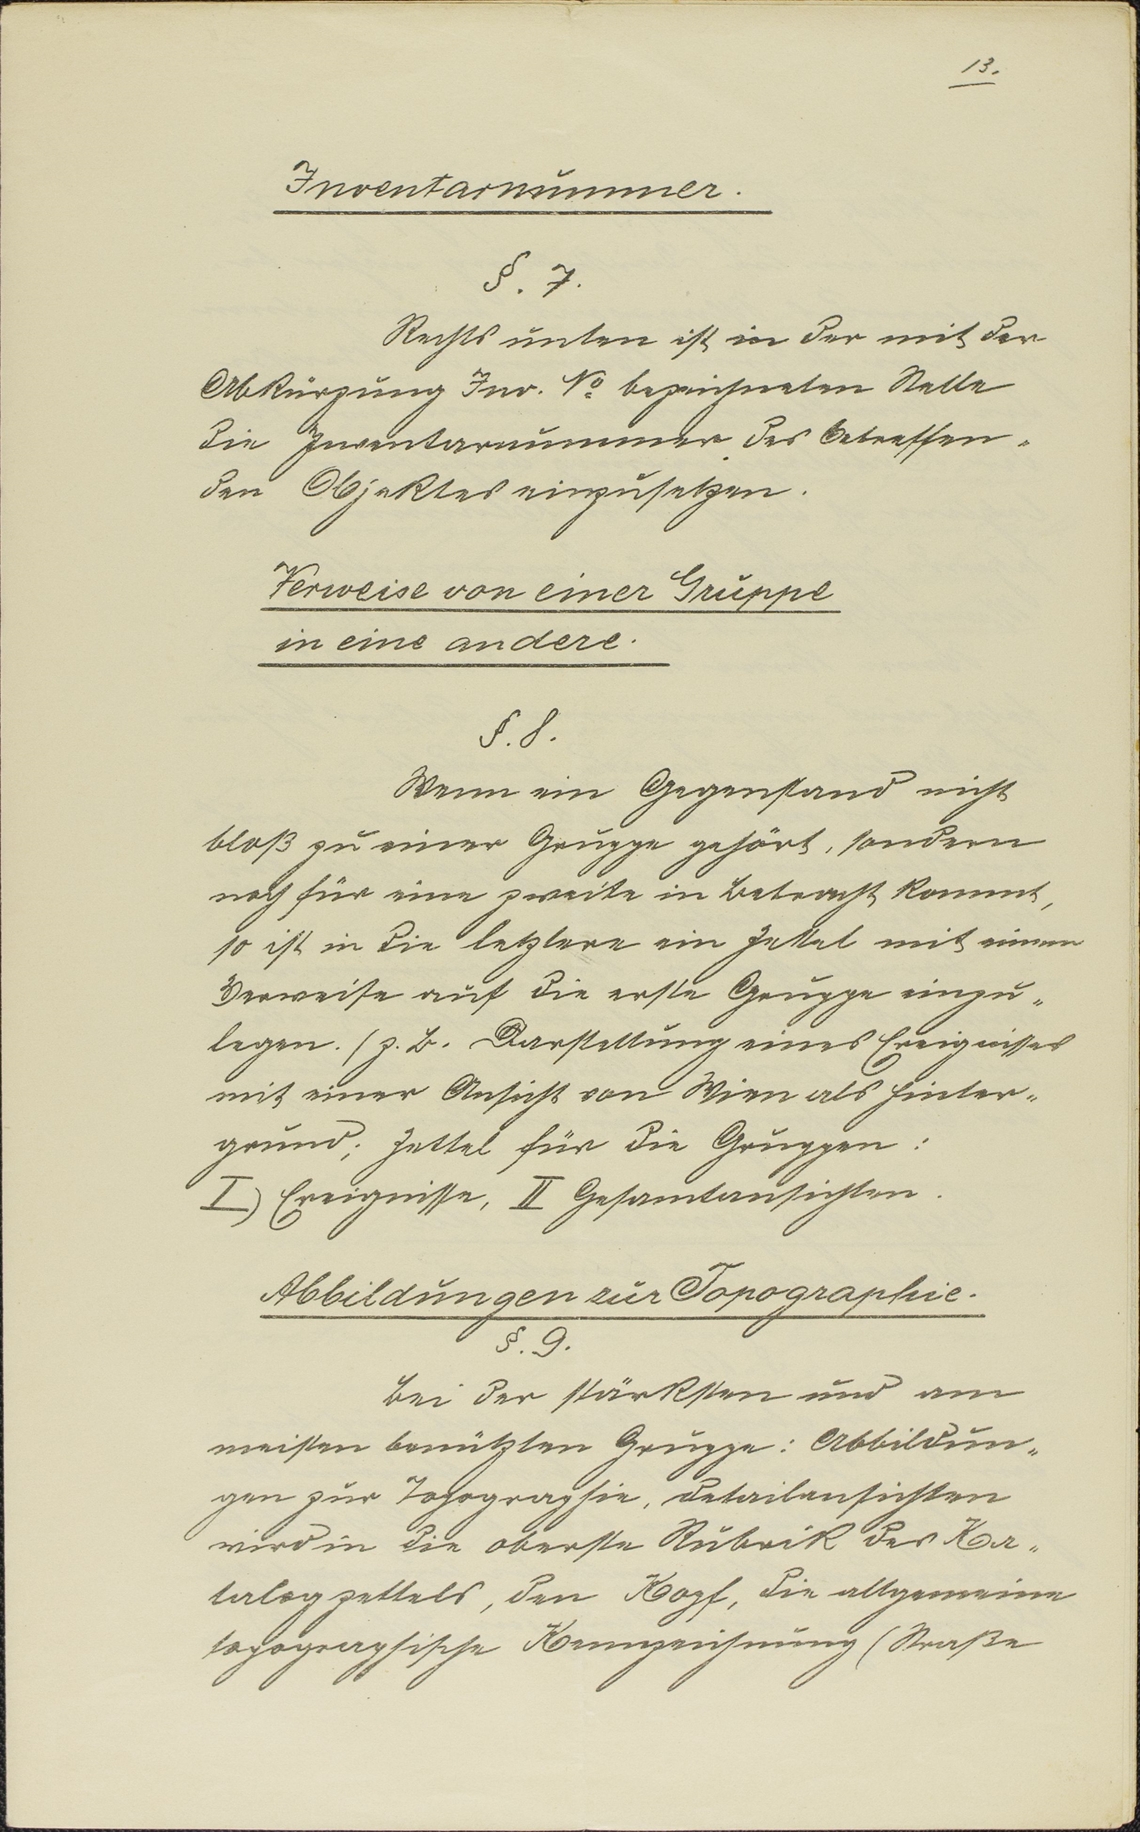 13.
Inventarnummer.
§. 7.
Rechts unten ist in der mit der
Abkürzung Inv. No bezeichneten Stelle
die Inventarnummer des betreffen-
den Objektes einzusetzen.
Verweise von einer Gruppe
in eine andere.
§. 8.
Wenn ein Gegenstand nicht
bloß zu einer Gruppe gehört, sondern
noch für eine zweite in Betracht kommt,
so ist in die letztere ein Zettel mit einem
Verweise auf die erste Gruppe einzu-
legen. (z. B. Darstellung eines Ereignisses
mit einer Ansicht von Wien als Hinter-
grund; Zettel für die Gruppen:
I) Ereignisse, II Gesamtansichten.
Abbildungen zur Topographie.
§. 9.
Bei der stärksten und am
meisten benützten Gruppe: Abbildun-
gen zur Topographie, Detailansichten
wird in die oberste Rubrik des Ka-
talogzettels, den Kopf, die allgemeine
topographische Kennzeichnung (Straße